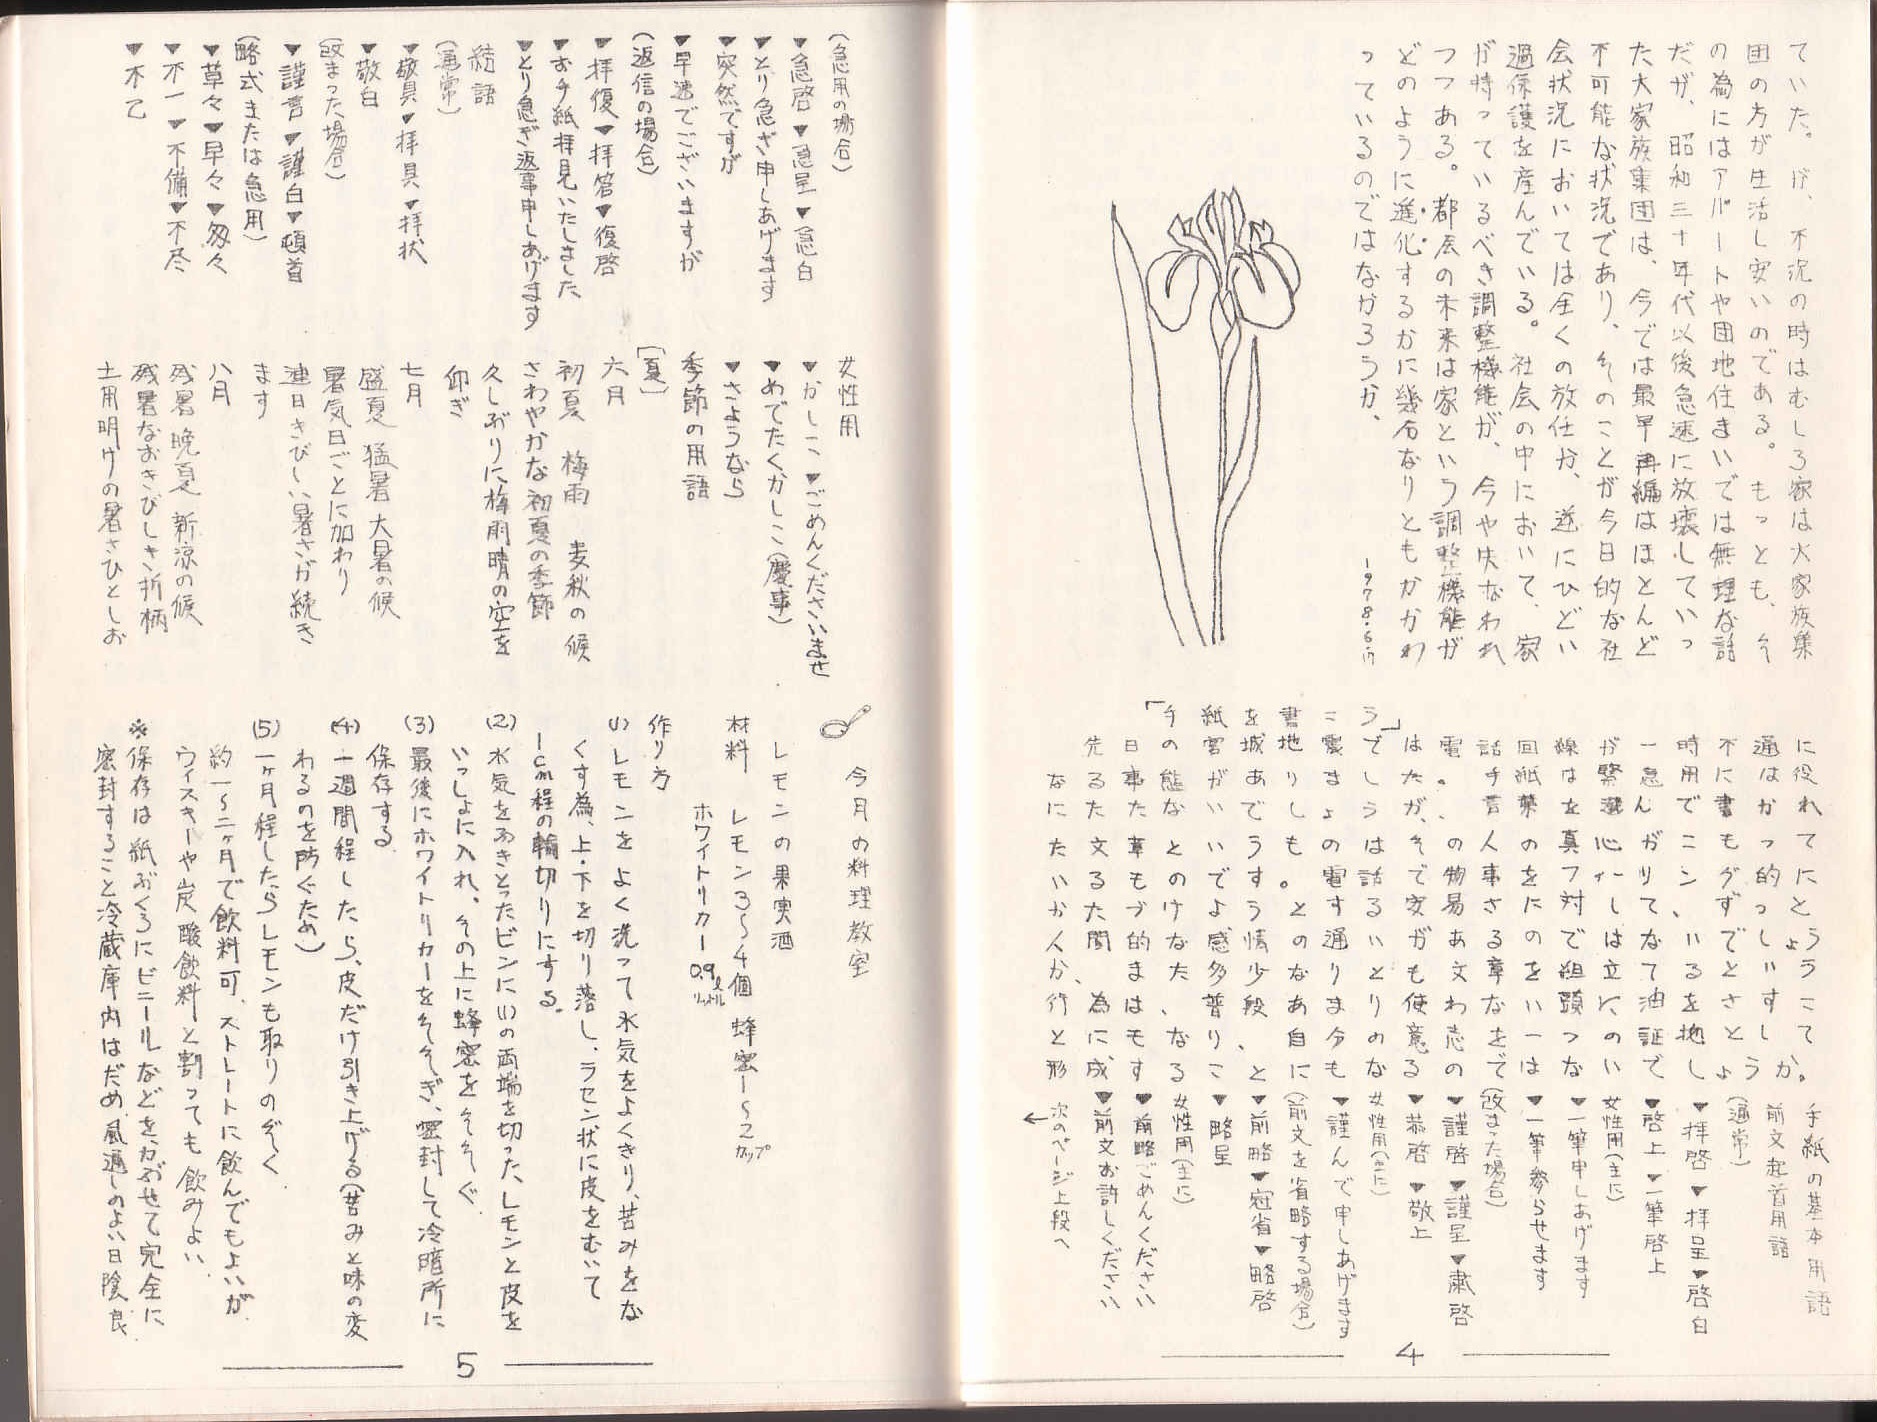 ていた。が、不況の時はむしろ家は大家族集
団の方が生活し安いのである。もっとも、そ
の為にはアパートや団地住まいでは無理な話
だが、昭和三十年代以後急速に放壊していっ
た大家族集団は、今では最早再編はほとんど
不可能な状況であり、そのことが今日的な社
会状況においては全くの放任か、逆にひどい
過保護を産んでいる。社会の中において、家
が持っているべき調整機能が、今や失なわれ
つつある。都民の未来は家という調整機能が
どのように進化するかに幾分なりともかかわ
っているのではなかろうか、
1978.6.17
「手紙を書こう」
先日の宮城地震では電話回線が一時不通に
なる事態がありました。手紙は緊急用には役
にたたないでしょうが、言葉を選んで書かれ
た文章というものは、その人の真心がこもって
いるものです。電話で物事をフィーリング的に
かたづけようとする安易さに対して、ずっと
人間的な感情の通いがあるのではないでしょう
か、また多少なりとも文章を組立てるという
行為は、普段あまり使わない頭に油をさすこ
とにもなり、自分の意志を一つの証拠として
形成することにもなるのではないでしょうか。
手紙の基本用語
前文起首用語
(通常)
▼拝啓▼拝呈▼啓白
▼啓上▼一筆啓上
女性用(主に)
▼一筆申しあげます
▼一筆参らせます
(改まった場合)
▼謹啓▼謹呈▼粛啓
▼恭啓▼敬上
女性用(主に)
▼謹んで申しあげます
(前文を省略する場合)
▼前略▼冠省▼略啓
▼略呈
女性用(主に)
▼前略ごめんください
▼前文お許しください
次のページ上段へ
←
4
(急用の場合)
▼急啓▼急呈▼急白
▼とり急ぎ申しあげます
▼突然ですが
▼早速でございますが
(返信の場合)
▼拝復▼拝答▼復啓
▼お手紙拝見いたしました
▼とり急ぎ返事申しあげます
結語
(通常)
▼敬具▼拝具▼拝状
▼敬白
(改まった場合)
▼謹言▼謹白▼頓首
(略式または急用)
▼草々▼早々▼匆々
▼不一▼不備▼不尽
▼不乙
女性用
▼かしこ▼ごめんくださいませ
▼めでたくかしこ(慶事)
▼さようなら
季節の用語
[夏]
六月
初夏 梅雨 麦秋の候
さわやかな初夏の季節
久しぶりに梅雨晴の空を
仰ぎ
七月
盛夏 猛暑 大暑の候
暑気日ごとに加わり
連日きびしい暑さが続き
ます
八月
残暑 晩夏 新涼の候
残暑なおきびしき折柄
土用明けの暑さひとしお
今月の料理教室
レモンの果実酒
材料 レモン3〜4個 蜂蜜1〜2カップ
ホワイトリカー0.9ℓリットル
作り方
(1)レモンをよく洗って水気をよくきり、苦みをな
くす為、上・下を切り落し、ラセン状に皮をむいて
1cm程の輪切りにする。
(2)水気をふきとったビンに(1)の両端を切ったレモンと皮を
いっしょに入れ。その上に蜂蜜をそそぐ
(3)最後にホワイトリカーをそそぎ、密封して冷暗所に
保存する
(4)一週間程したら、皮だけ引き上げる(苦みと味の変
わるのを防ぐため)
(5)一ヶ月程したらレモンも取りのぞく
約一〜二ヶ月で飲料可、ストレートに飲んでもよいが
ウィスキーや炭酸飲料と割っても飲みよい
※保存は紙ぶくろにビニールなどをかぶせて完全に
密封すること冷蔵庫内はだめ風通しのよい日陰良
5